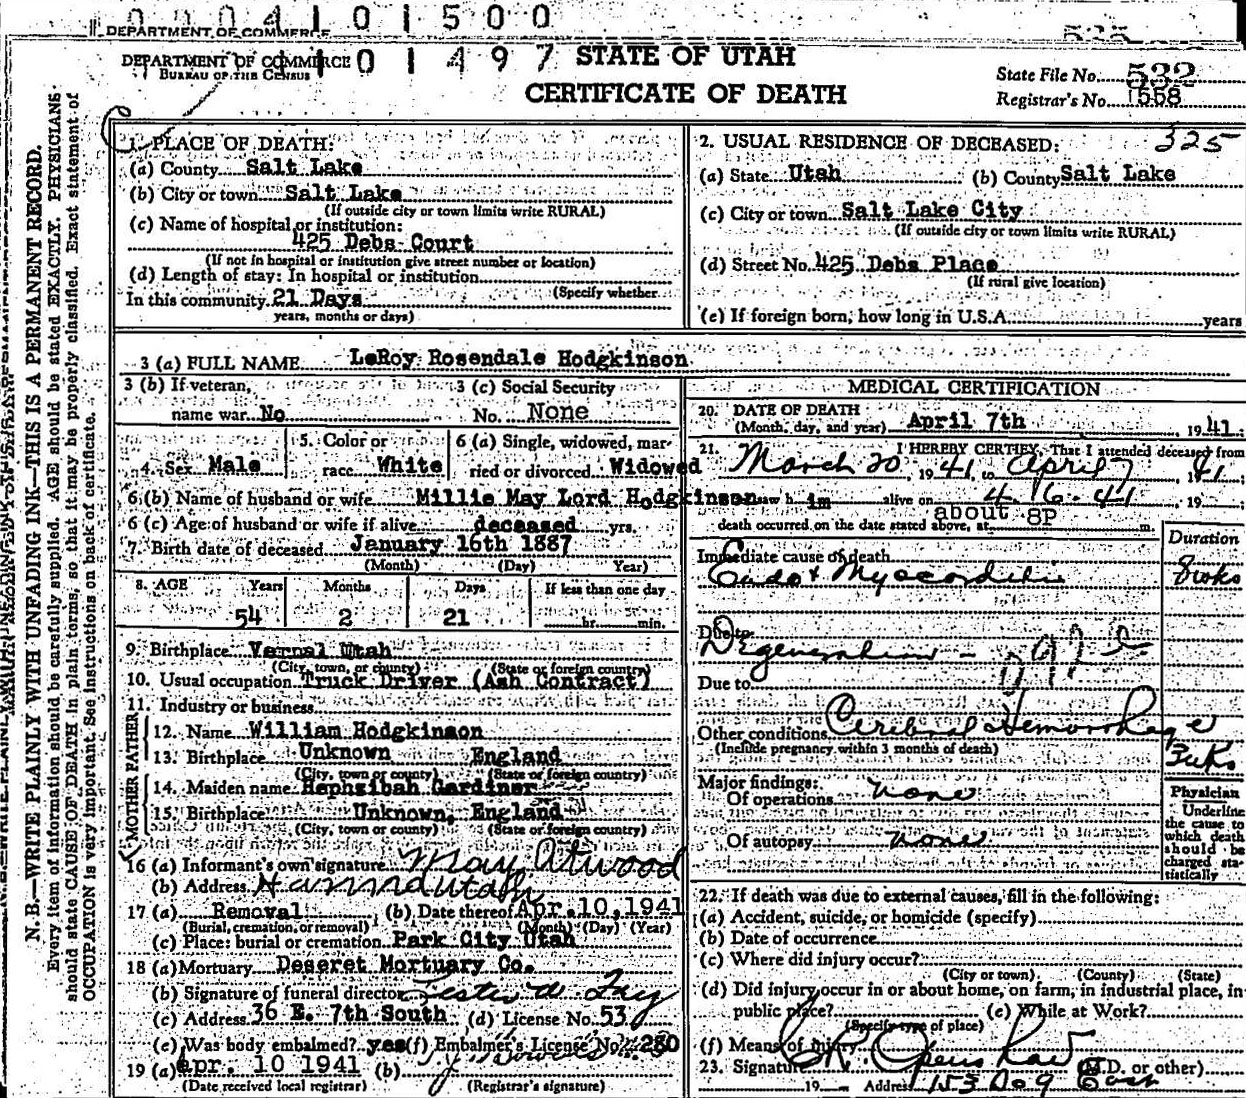 0 0 0 4 1 0 1 5 0 0
DEPARTMENT OF COMMERCE
DEPARTMENT OF COMMERCE
BUREAU OF THE CENSUS
1 0 1 4 9 7
STATE OF UTAH
CERTIFICATE OF DEATH
State File No. 532
Registrar's No. 558
325
N. B.—WRITE PLAINLY WITH UNFADING INK—THIS IS A PERMANENT RECORD.
Every item of information should be carefully supplied. AGE should be stated EXACTLY. PHYSICIANS
should state CAUSE OF DEATH in plain terms, so that it may be properly classified. Exact statement of
OCCUPATION is very important. See instructions on back of certificate.
1. PLACE OF DEATH:
(a) County Salt Lake
(b) City or town Salt Lake
(If outside city or town limits write RURAL)
(c) Name of hospital or institution:
425 Debs Court
(If not in hospital or institution give street number or location)
(d) Length of stay: In hospital or institution
(Specify whether
In this community 21 Days
years, months or days)
2. USUAL RESIDENCE OF DECEASED:
(a) State Utah (b) County Salt Lake
(c) City or town Salt Lake City
(If outside city or town limits write RURAL)
(d) Street No. 425 Debs Place
(If rural give location)
(e) If foreign born, how long in U.S.A. years
3 (a) FULL NAME LeRoy Rosendale Hodgkinson
3 (b) If veteran, 3 (c) Social Security
name war No No. None
4. Sex Male 5. Color or race White 6 (a) Single, widowed, married or divorced Widowed
6 (b) Name of husband or wife Millie May Lord Hodgkinson
6 (c) Age of husband or wife if alive deceased yrs.
7. Birth date of deceased January 16th 1887
(Month) (Day) Year)
8. AGE Years Months Days If less than one day
54 2 21 hr. min.
9. Birthplace Vernal Utah
(City, town, or county) (State or foreign country)
10. Usual occupation Truck Driver (Ash Contract)
11. Industry or business
FATHER
12. Name William Hodgkinson
13. Birthplace Unknown England
(City, town or county) (State or foreign country)
MOTHER
14. Maiden name Hephzibah Gardiner
15. Birthplace Unknown, England
(City, town or county) (State or foreign country)
16 (a) Informant's own signature May Atwood
(b) Address Hanna Utah
17 (a) Removal (b) Date thereof Apr. 10, 1941
(Burial, cremation, or removal) (Month) (Day) (Year)
(c) Place: burial or cremation Park City Utah
18 (a) Mortuary Deseret Mortuary Co.
(b) Signature of funeral director
(c) Address 36 E. 7th South (d) License No. 53
(e) Was body embalmed? yes (f) Embalmer's License No. 280
19 (a) apr. 10 1941 (b)
(Date received local registrar) (Registrar's signature)
MEDICAL CERTIFICATION
20. DATE OF DEATH
(Month, day, and year) April 7th 1941
21. I HEREBY CERTIFY, That I attended deceased from
March 20, 1941, to April 7, 1941
saw him alive on 4-16-41 19
about 8P
death occurred on the date stated above, at m.
Duration
Immediate cause of death
Endo + Myocarditis 8 wks
Due to
Degeneration -
Due to
Other conditions Cerebral Hemorrhage
(Include pregnancy within 3 months of death)
3 wks
Major findings:
Of operations none
Of autopsy none
Physician
Underline
the cause to
which death
should be
charged sta-
tistically
22. If death was due to external causes, fill in the following:
(a) Accident, suicide, or homicide (specify)
(b) Date of occurrence
(c) Where did injury occur?
(City or town) (County) (State)
(d) Did injury occur in or about home, on farm, in industrial place, in
public place? (e) While at Work?
(Specify type of place)
(f) Means of injury
23. Signature (M.D. or other)
19 Address 153 So 9 East